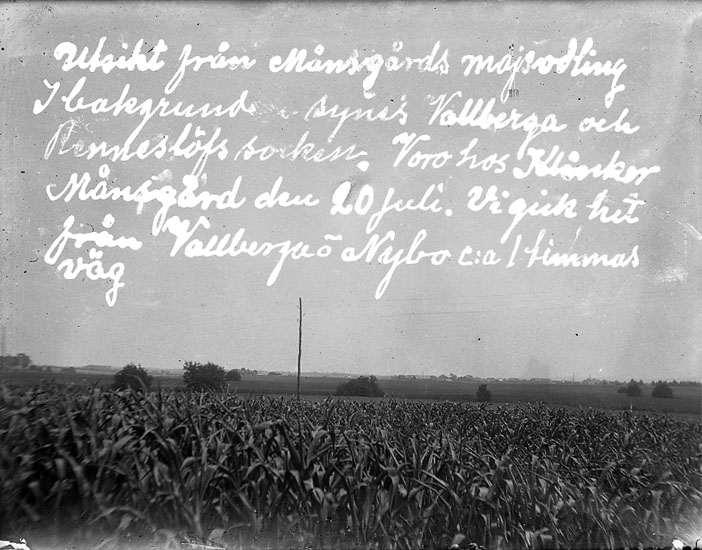 Utsikt från Månsgårds majsodling
I bakgrunden synes Vallberga och
Renneslöfs socken. Voro hos Klinker
Månsgård den 20 juli. Vi gick hit
från Vallberga ö Nybo c:a 1 timmas
väg